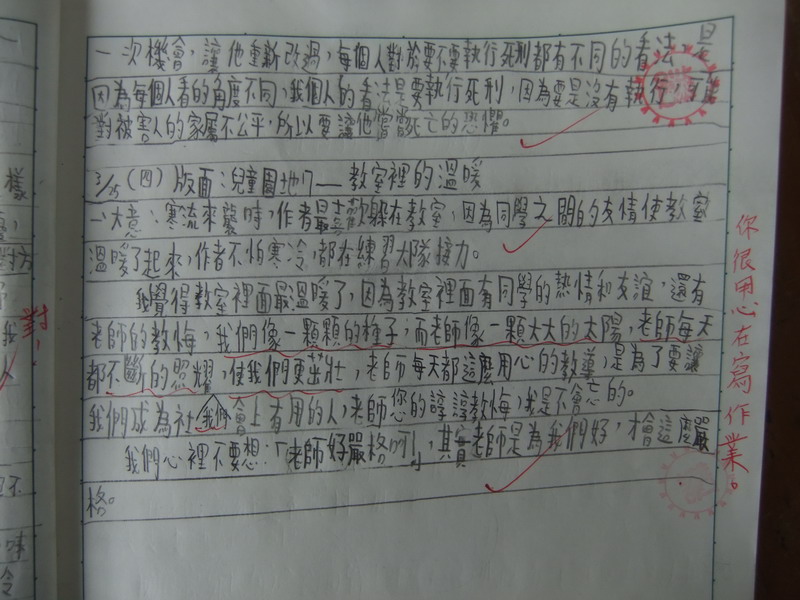 一次機會，讓他重新改過，每個人對於要不要執行死刑都有不同的看法，是
因為每個人看的角度不同，我個人的看法是要執行死刑，因為要是沒有執行，
對被害人的家屬不公平，所以要讓他嘗嘗死亡的恐懼。
3/25(四)版面：兒童園地ㄇ——教室裡的溫暖
一、大意：寒流來襲時，作者最喜歡躲在教室，因為同學之間的友情使教室
溫暖了起來，作者不怕寒冷，都在練習大隊接力。
我覺得教室裡面最溫暖了，因為教室裡面有同學的熱情和友誼，還有
老師的教悔，我們像一顆顆的種子；而老師像一顆大大的太陽，老師每天
都不斷的照耀，使我們更茁壯，老師每天都這麼用心的教導，是為了要讓
我們成為社會上有用的人，老師您的諄諄教悔，我是不會忘的。
我們
我們心裡不要想：「老師好嚴格呵！」其實老師是為我們好，才會這麼嚴
格。
你很用心在寫作業。
對！
樣
對方
我
人
令